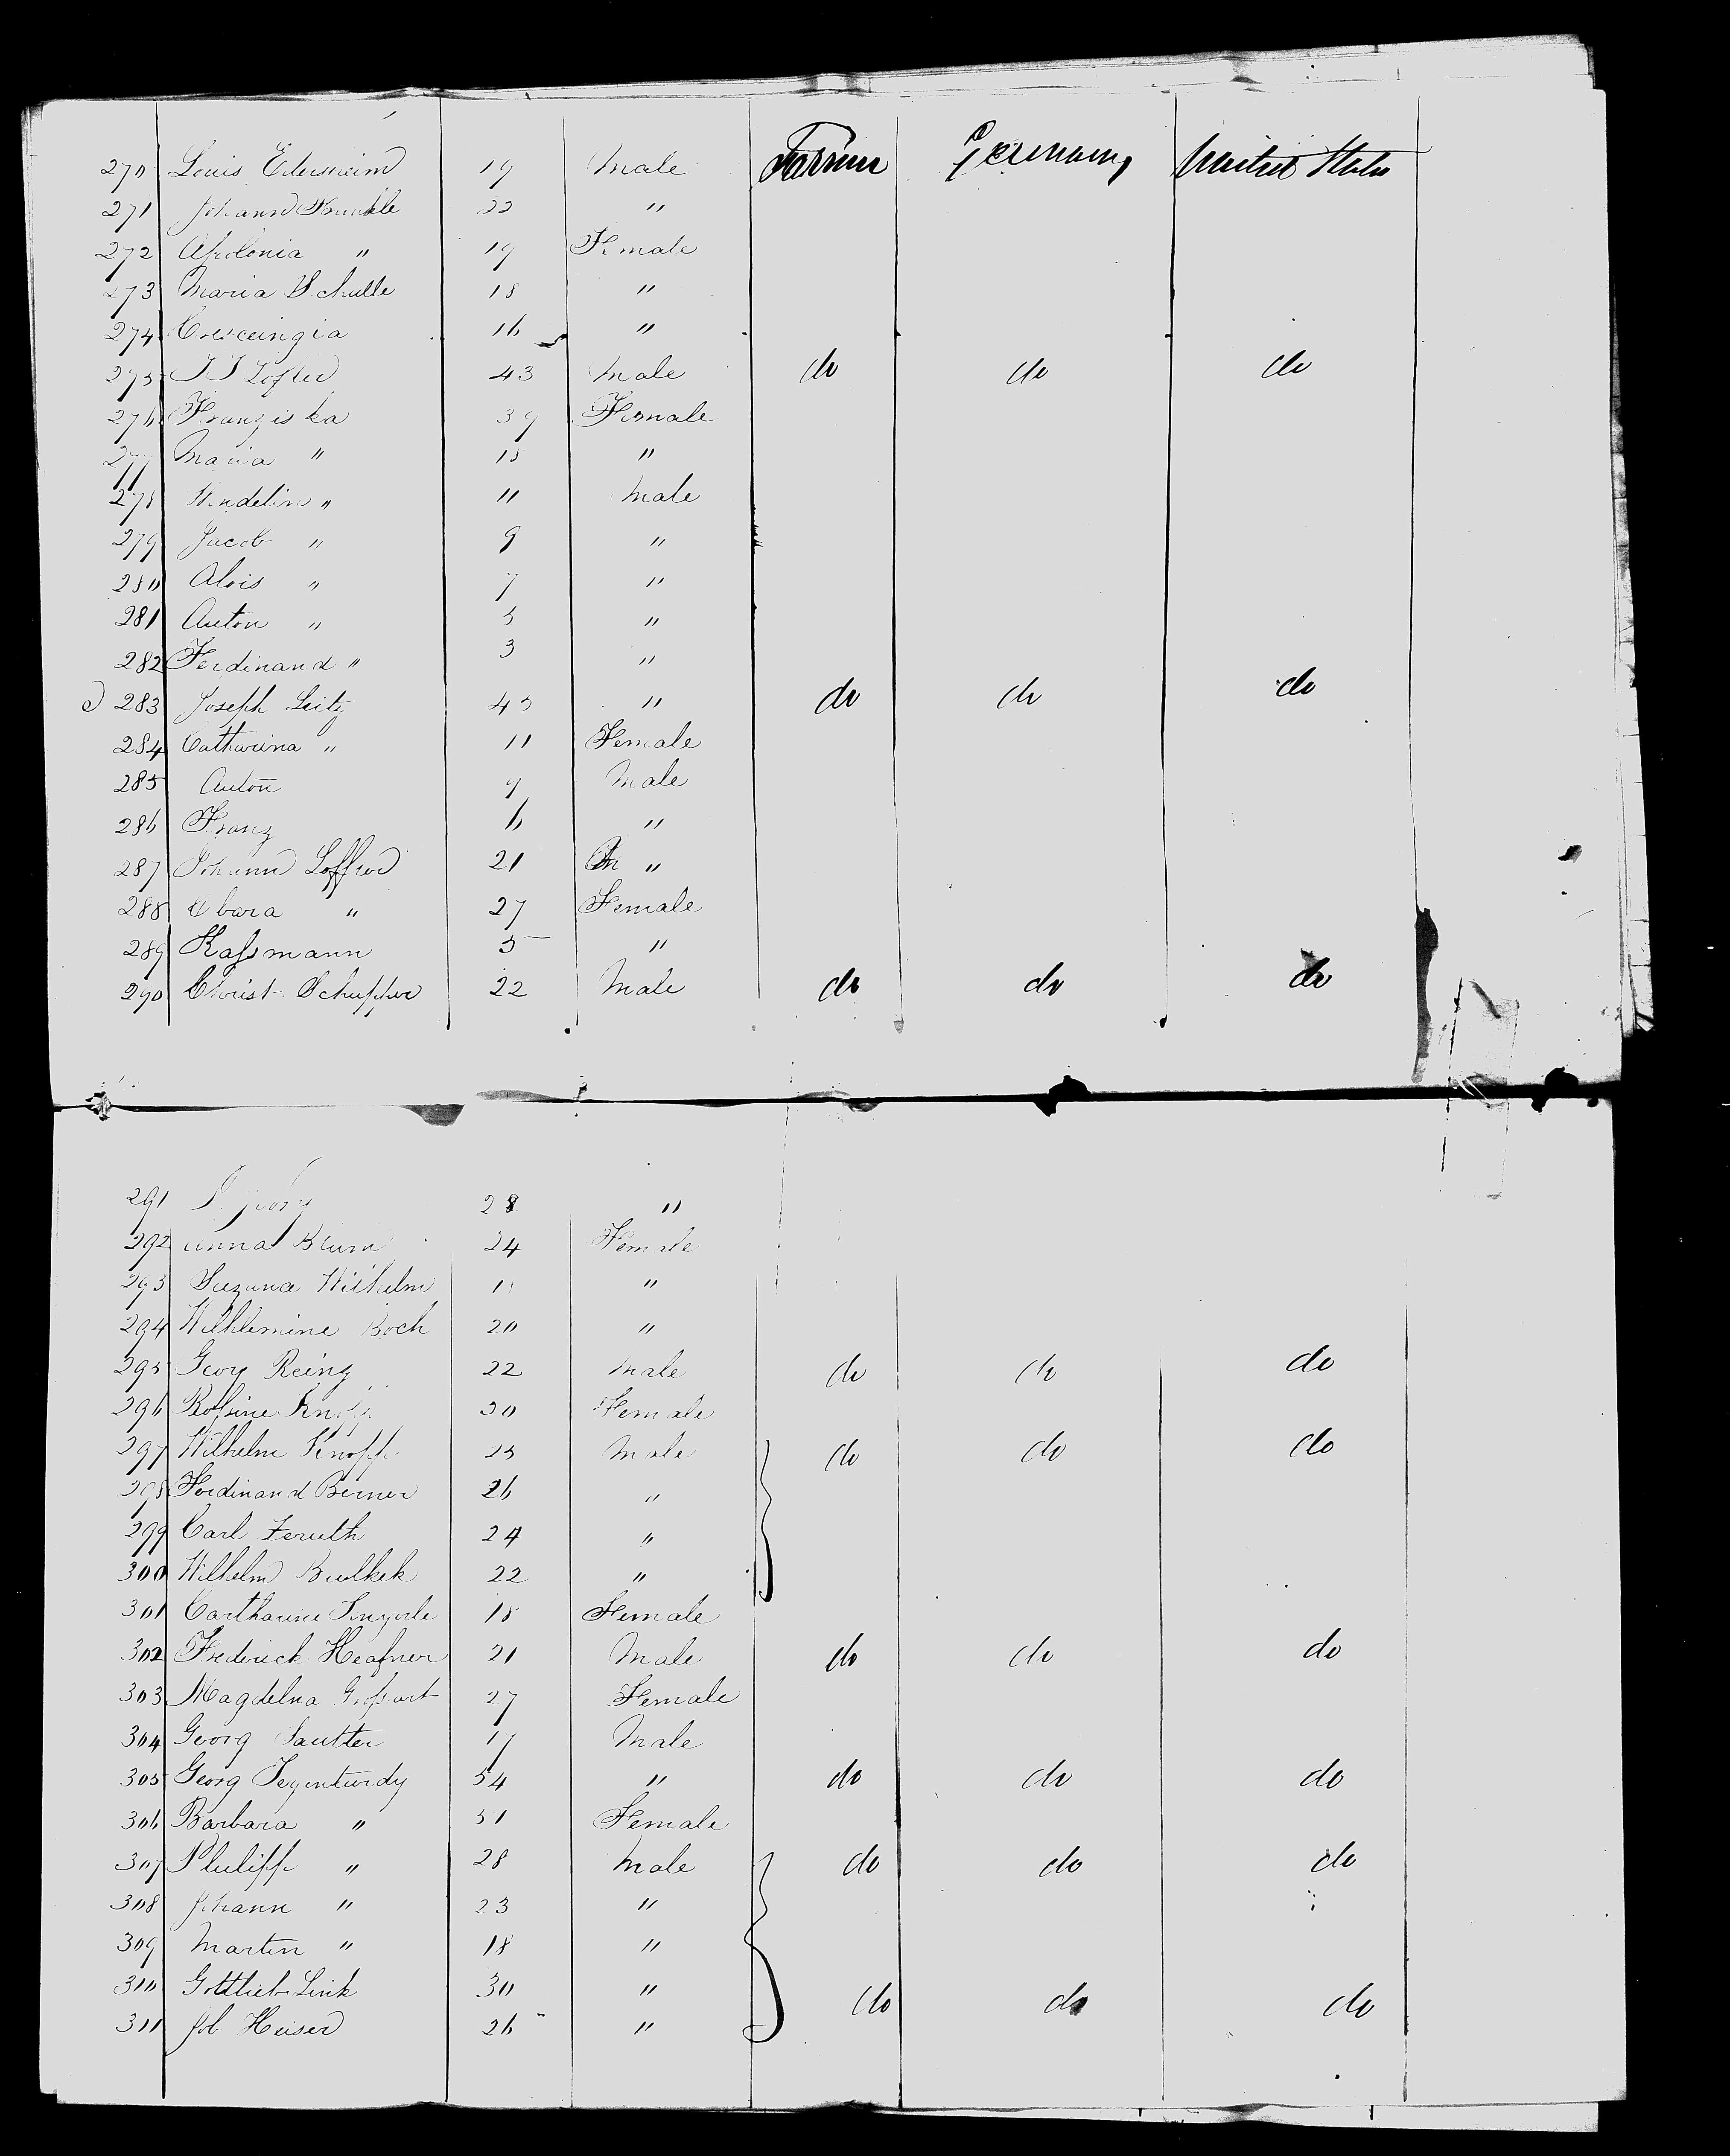 270 Louis Edesheim 19 Male Farmer Germany United States
271 Johann Trunkle 22 "
272 Apolonia " 19 Female
273 Maria Schulle 18 "
274 16 "
275 J J Lofler 43 Male do do do
276 Franziska 39 Female
277 Maria " 18 "
278 Wendelin " 11 Male
279 Jacob " 9 "
280 Alois " 7 "
281 Anton " 5 "
282 Ferdinand " 3 "
283 Joseph Leitz 45 " do do do
284 Catharina " 11 Female
285 Anton 9 Male
286 Franz 6 "
287 Johann Loffler 21 "
288 " 27 Female
289 Kassmann 5 "
290 Christ. Schupper 22 Male do do do
291 28 "
292 Anna Blum 24 Female
293 Suzana Wilhelm "
294 Wilhlemine Boch 20 "
295 Georg Reinz 22 Male do do do
296 Rossine Knopp 30 Female
297 Wilhelm Knopp 25 Male do do do
298 Ferdinand Berner 26 "
299 Carl Zeruth 24 "
300 Wilhelm 22 "
301 18 Female
302 Frederick Heafner 21 Male do do do
303 Magdelna 27 Female
304 Georg Sautter 17 Male
305 Georg 54 " do do do
306 Barbara " 51 Female
307 Philipp " 28 Male do do do
308 Johann " 23 "
309 Martin " 18 "
310 Gottlieb Link 30 " do do do
311 Job Heiser 26 "